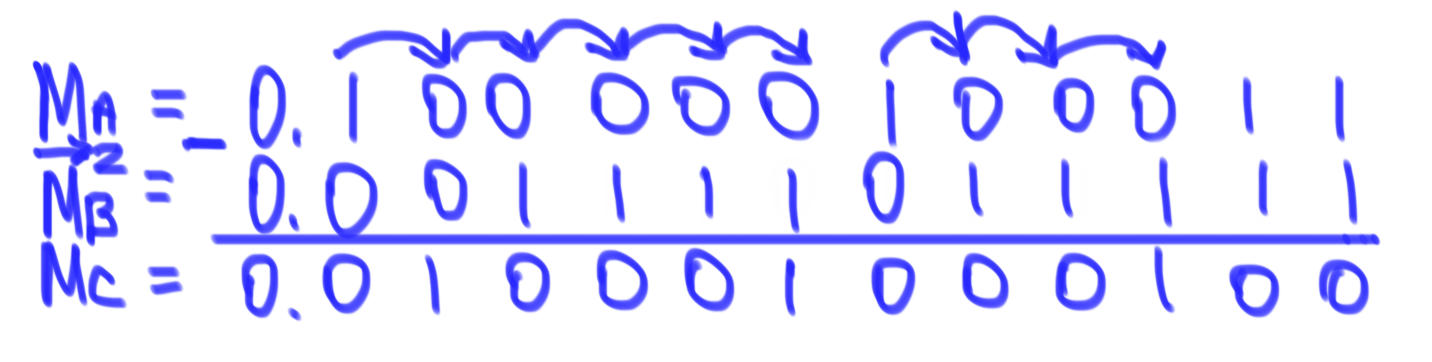 M_A = - 0.100000100011
M_B→2 = 0.001111011111
M_C = 0.010001000100